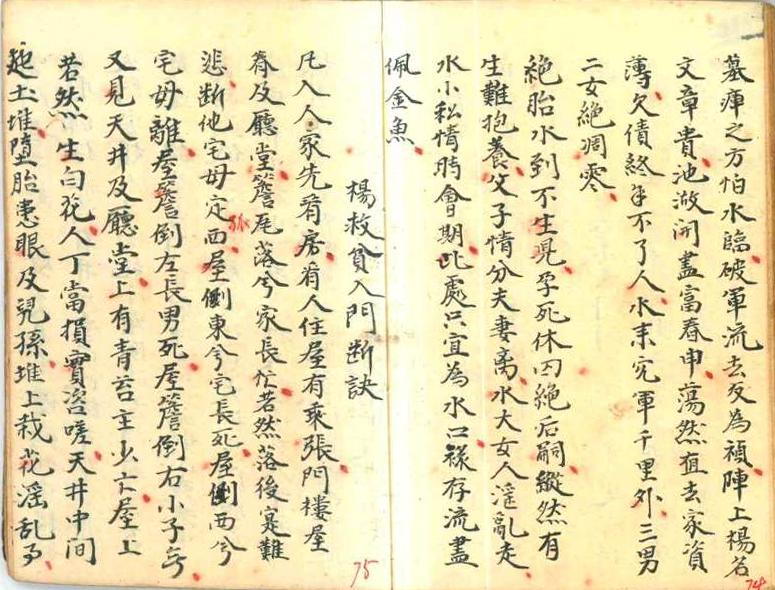 墓庫之方怕水臨破軍流去反為禎陣上楊名
文章貴池湖開盡富春申蕩然直去家資
薄欠債終年不了人水来完軍千里外三男
二女絕凋零
絕胎水到不生児孕死休囚絕后嗣縱然有
生難抱養父子情分夫妻离水大女人淫亂走
水小私情時會期此處只宜為水口祿存流盡
佩金魚
74
楊救貧入門断訣
凡入人家先看房看人住屋有乘張門樓屋
脊及廳堂簷尾落兮家長忙若然落後寔難
悲断他宅母定西屋倒東兮宅長死屋倒西兮
宅母離屋簷倒左長男死屋簷倒右小子亏
又見天井及廳堂上有青苔主少亡屋上
若然生白花人丁當損實咨嗟天井中間
起土堆墮胎患眼及兒孫堆上栽花滛乱
75